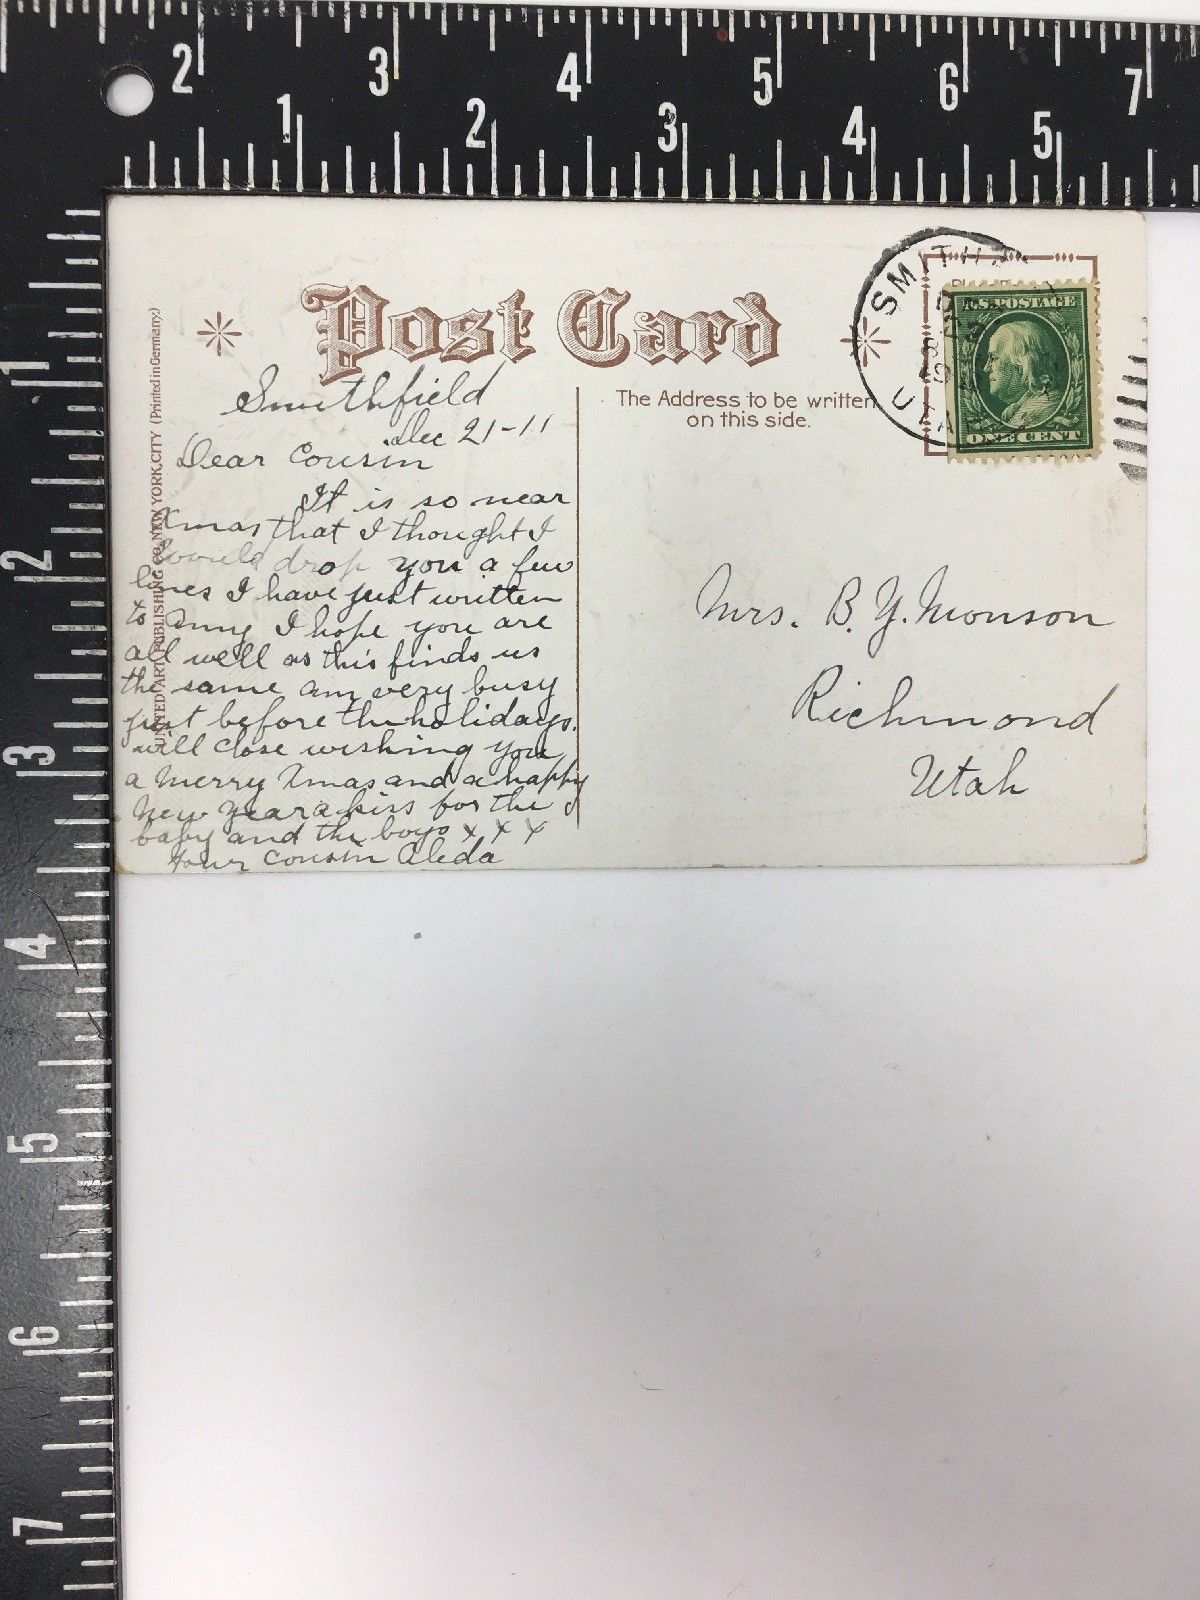 2 3 4 5 6 7
1 2 3 4 5
1
2
3
4
5
6
7
Post Card
SMITH
UTAH
U.S. POSTAGE
ONE CENT
The Address to be written
on this side.
UNITED ART PUBLISHING CO. NEW YORK, CITY (Printed in Germany.)
Smithfield
Dec 21-11
Dear Cousin
It is so near
Xmas that I thought I
would drop you a few
lines I have just written
to I hope you are
all well as this finds us
the same am very busy
just before the holidays.
will close wishing you
a Merry Xmas and a happy
New Year a kiss for the
baby and the boys x x x
Your Cousin Aleda
Mrs. B. Y. Monson
Richmond
Utah